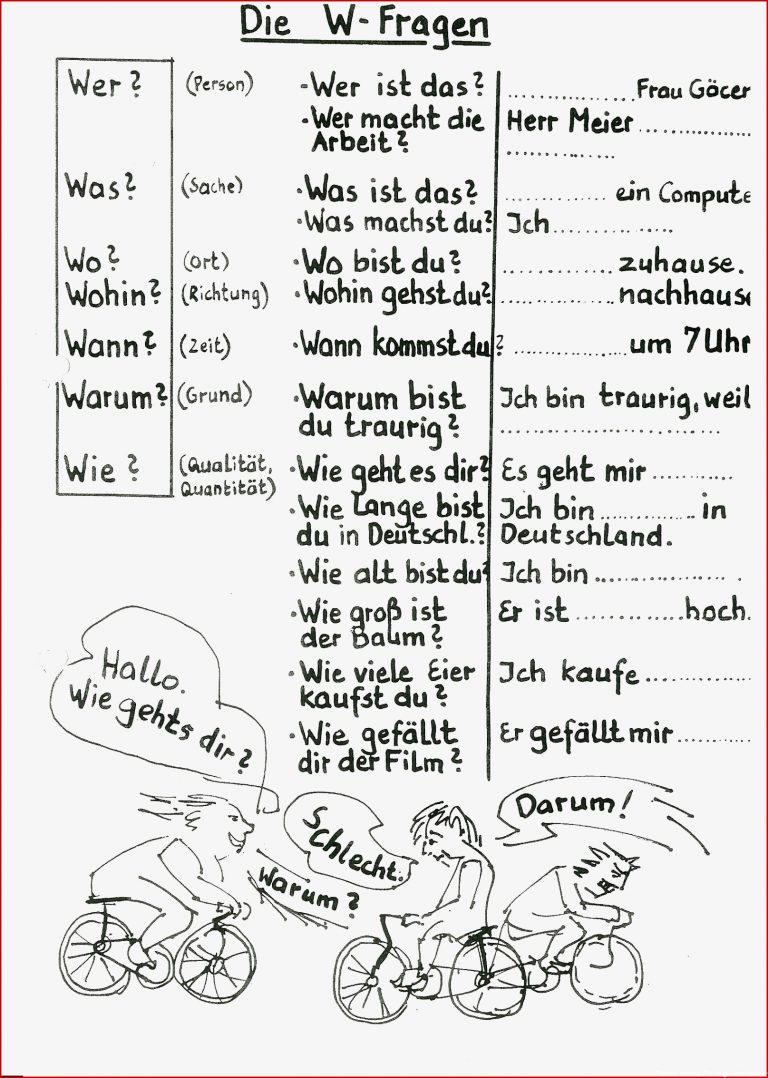 Die W-Fragen
Wer? (Person) ·Wer ist das? ................Frau Göcer
·Wer macht die Herr Meier ..............
Arbeit? .............
Was? (Sache) ·Was ist das? ............. ein Compute
·Was machst du? Ich................
Wo? (Ort) ·Wo bist du? .............. zuhause.
Wohin? (Richtung) ·Wohin gehst du? ..............nachhause
Wann? (Zeit) ·Wann kommst du? ..............um 7 Uhr
Warum? (Grund) ·Warum bist Ich bin traurig, weil
du traurig? ..........................
Wie? (Qualität, ·Wie geht es dir? Es geht mir ...........
Quantität)
·Wie Lange bist Ich bin .............. in
du in Deutschl.? Deutschland.
·Wie alt bist du? Ich bin .................. .
·Wie groß ist Er ist .............hoch.
der Baum?
·Wie viele Eier Ich kaufe..............
kaufst du?
·Wie gefällt Er gefällt mir ..........
dir der Film?
Hallo.
Wie gehts dir?
Schlecht.
Warum?
Darum!